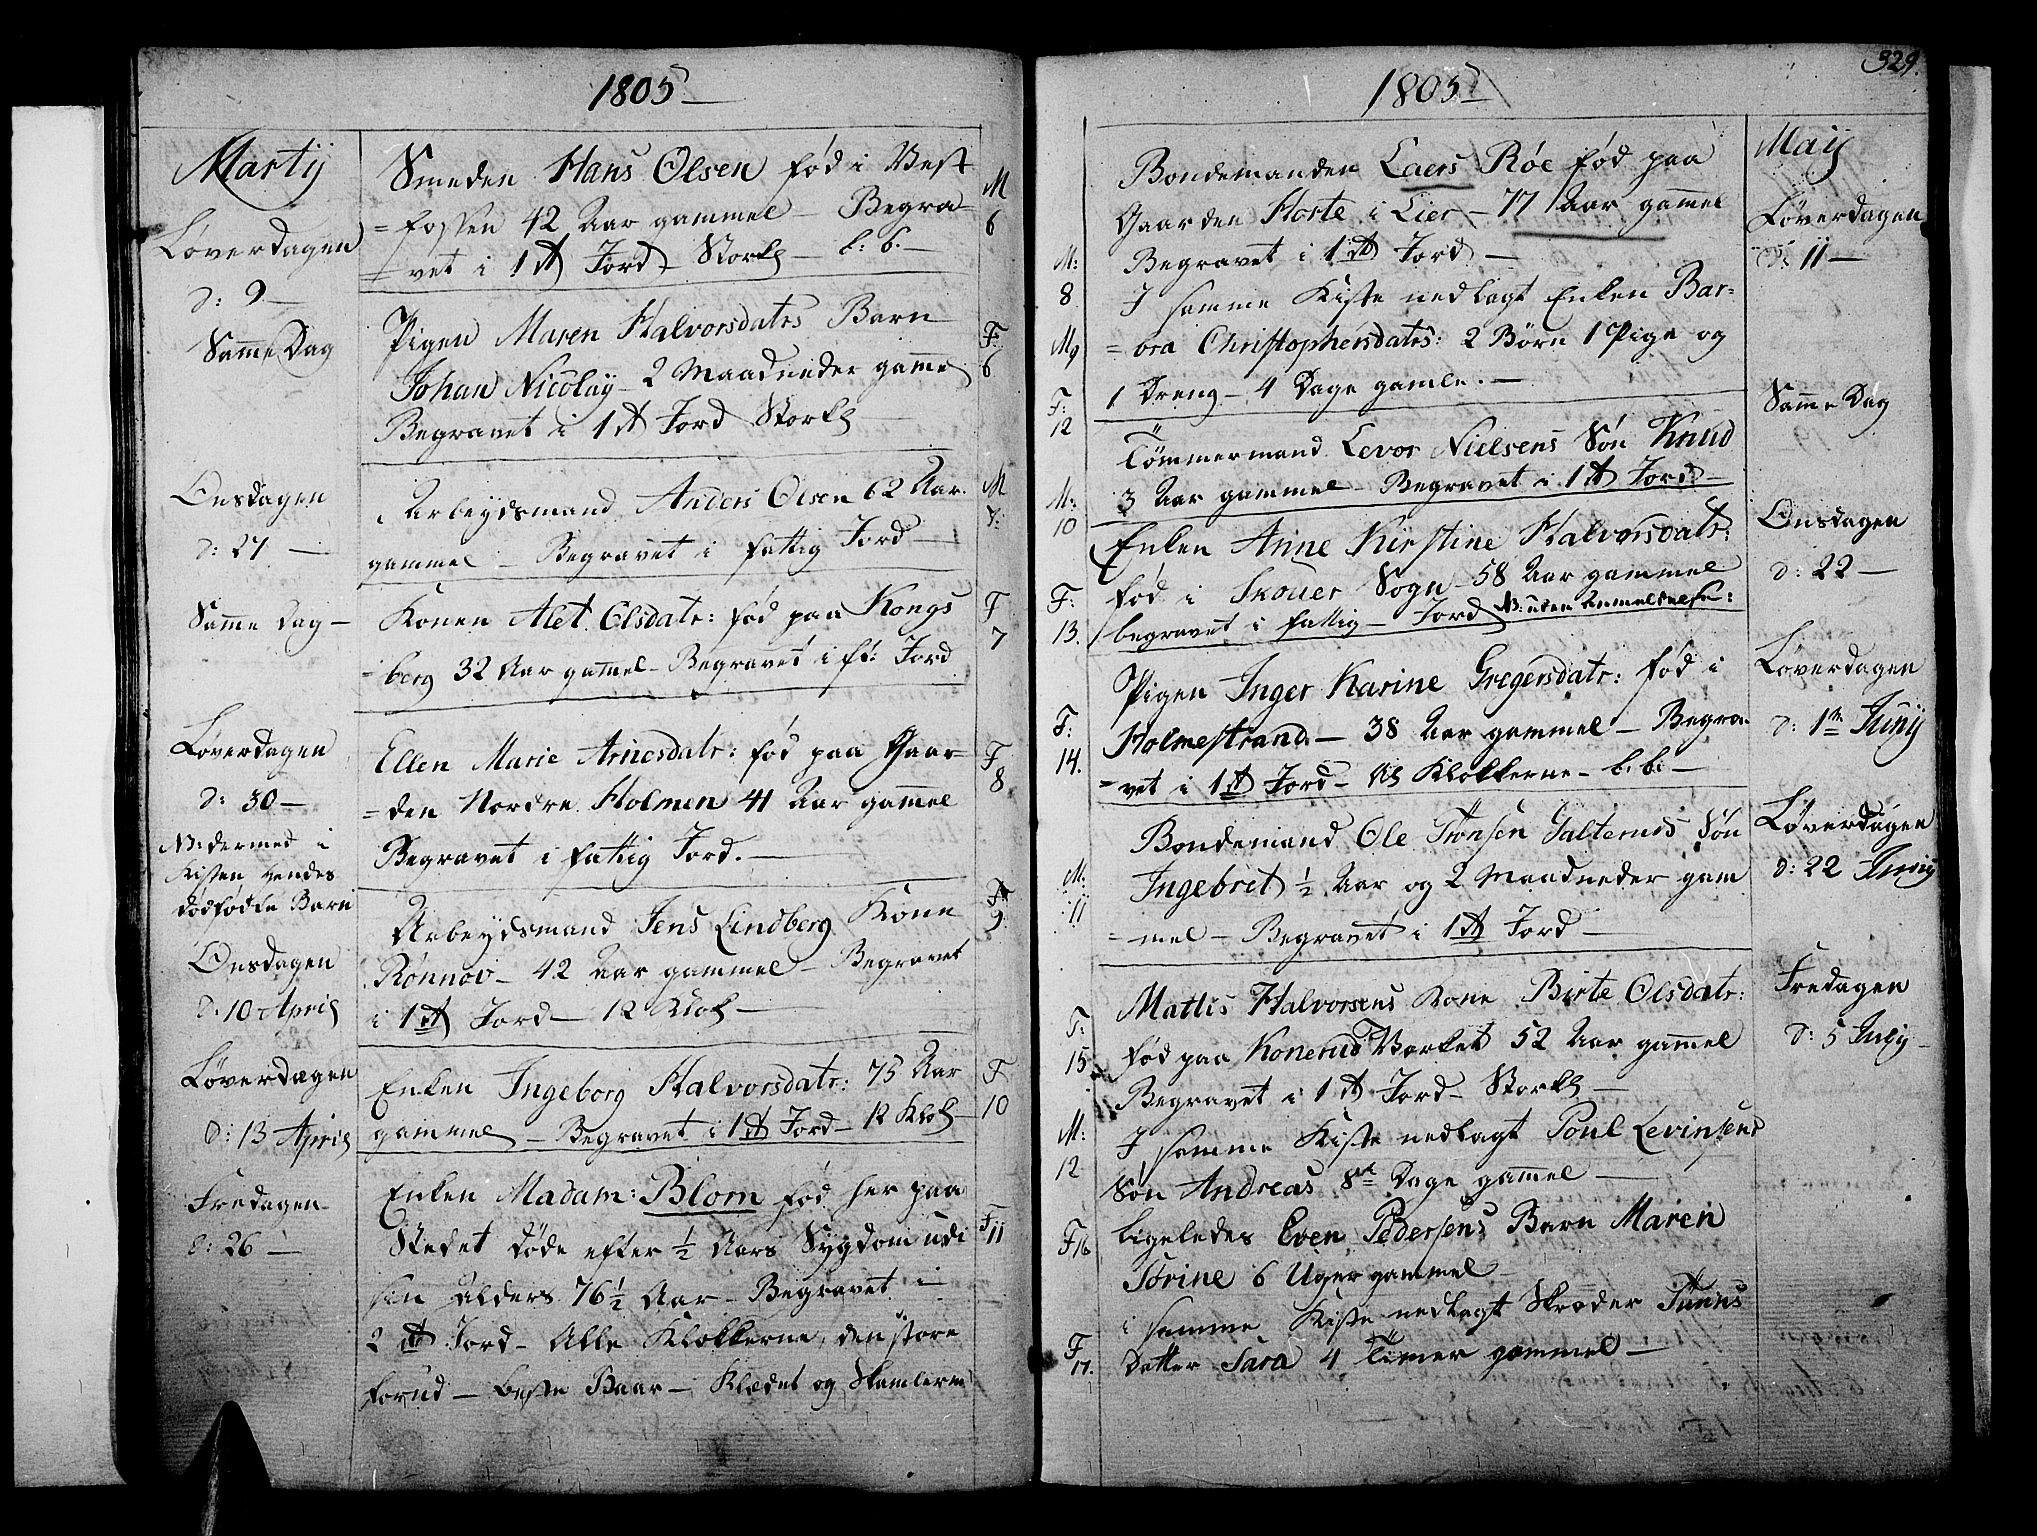 1805
Martij
Løverdagen
d: 9
Smeden Hans Olsen fød i Vest
=fossen 42 Aar gammel – Begra=
=vet i 1st Jord – Stor Kl – b: b.
M
6
Samme Dag
Pigen Maren Halvorsdatrs Barn
Johan Nicolay – 2 Maadneder gammel
Begravet i 1st Jord Stor Kl
F
6
Onsdagen
d: 27
Arbeydsmand Anders Olsen 62 Aar
gammel – Begravet i fattig Jord
M
7:
Samme Dag
Konen Alet Olsdatr: fød paa Kongs
=berg 32 Aar gammel – Begravet i ft: Jord
F
7
Løverdagen
d: 30
NB: dermed i
Kisten hendes
dødfødte Barn
Ellen Marie Arnesdatr: fød paa Gaar=
=den Nordre Holmen 41 Aar gammel
Begravet i fattig Jord.
F
8
Onsdagen
d: 10 April
Arbeydsmand Jens Lindberg Kone
Rønnov – 42 Aar gammel – Begravet
i 1st Jord – 12 Kloch
F
9
Løverdagen
d: 13 April
Enken Ingeborg Halvorsdatr: 75 Aar
gammel – Begravet i 1st Jord – 12 Kloch
F
10
Fredagen
d: 26
Enken Madam: Blom fød her paa
Stedet døde efter ½ Aars Sygdom udi
sin Alders 76½ Aar – Begravet i
2st Jord – Alle Klokkerne, den store
forud – beste Baar – Klædet og Skamlerne
F
11
329.
1805
Maij
Løverdagen
d: 11
M:
8
Bondemanden Laers Røe fød paa
Gaarden Horte i Lier – 77 Aar gammel
Begravet i 1st Jord
I samme Kiste nedlagt Enken Bar=
=bra Christophersdatrs: 2 Børn 1 Pige og
1 Dreng – 4 Dage gamle.
M 9
F:
12
Samme Dag
M:
10
Tømmermand Levor Nielsens Søn Knud
3 Aar gammel – Begravet i 1st Jord
Onsdagen
d: 22
F:
13.
Enken Anne Kirstine Halvorsdatr:
fød i Skouer Sogn – 58 Aar gammel
begravet i fattig – Jord NB: uden Anmeldelse:
Løverdagen
d: 1te Junij
F:
14.
Pigen Inger Karine Gregersdatr: fød i
Holmestrand – 38 Aar gammel – Begra=
=vet i 1st Jord – Al Klokkerne – b: b:
Løverdagen
d: 22 Junij
M:
11
Bondemand Ole Tronsen Søn
Ingebret ½ Aar og 2 Maadneder gam
=mel – Begravet i 1st Jord
Fredagen
d: 5 July
F:
15
Mattis Halvorsens Kone Birte Olsdatr:
fød paa Konerud Værket 52 Aar gammel
Begravet i 1st Jord – Stor Kl
M:
12
I samme Kiste nedlagt Poul Levinsens
Søn Andreas 8te Dage gammel
F 16
ligeledes Even Pedersens Barn Maren
Sørine 6 Uger gammel
F
17.
i samme Kiste nedlagt Skræder Tunns
Datter Sara 4 Timer gammel